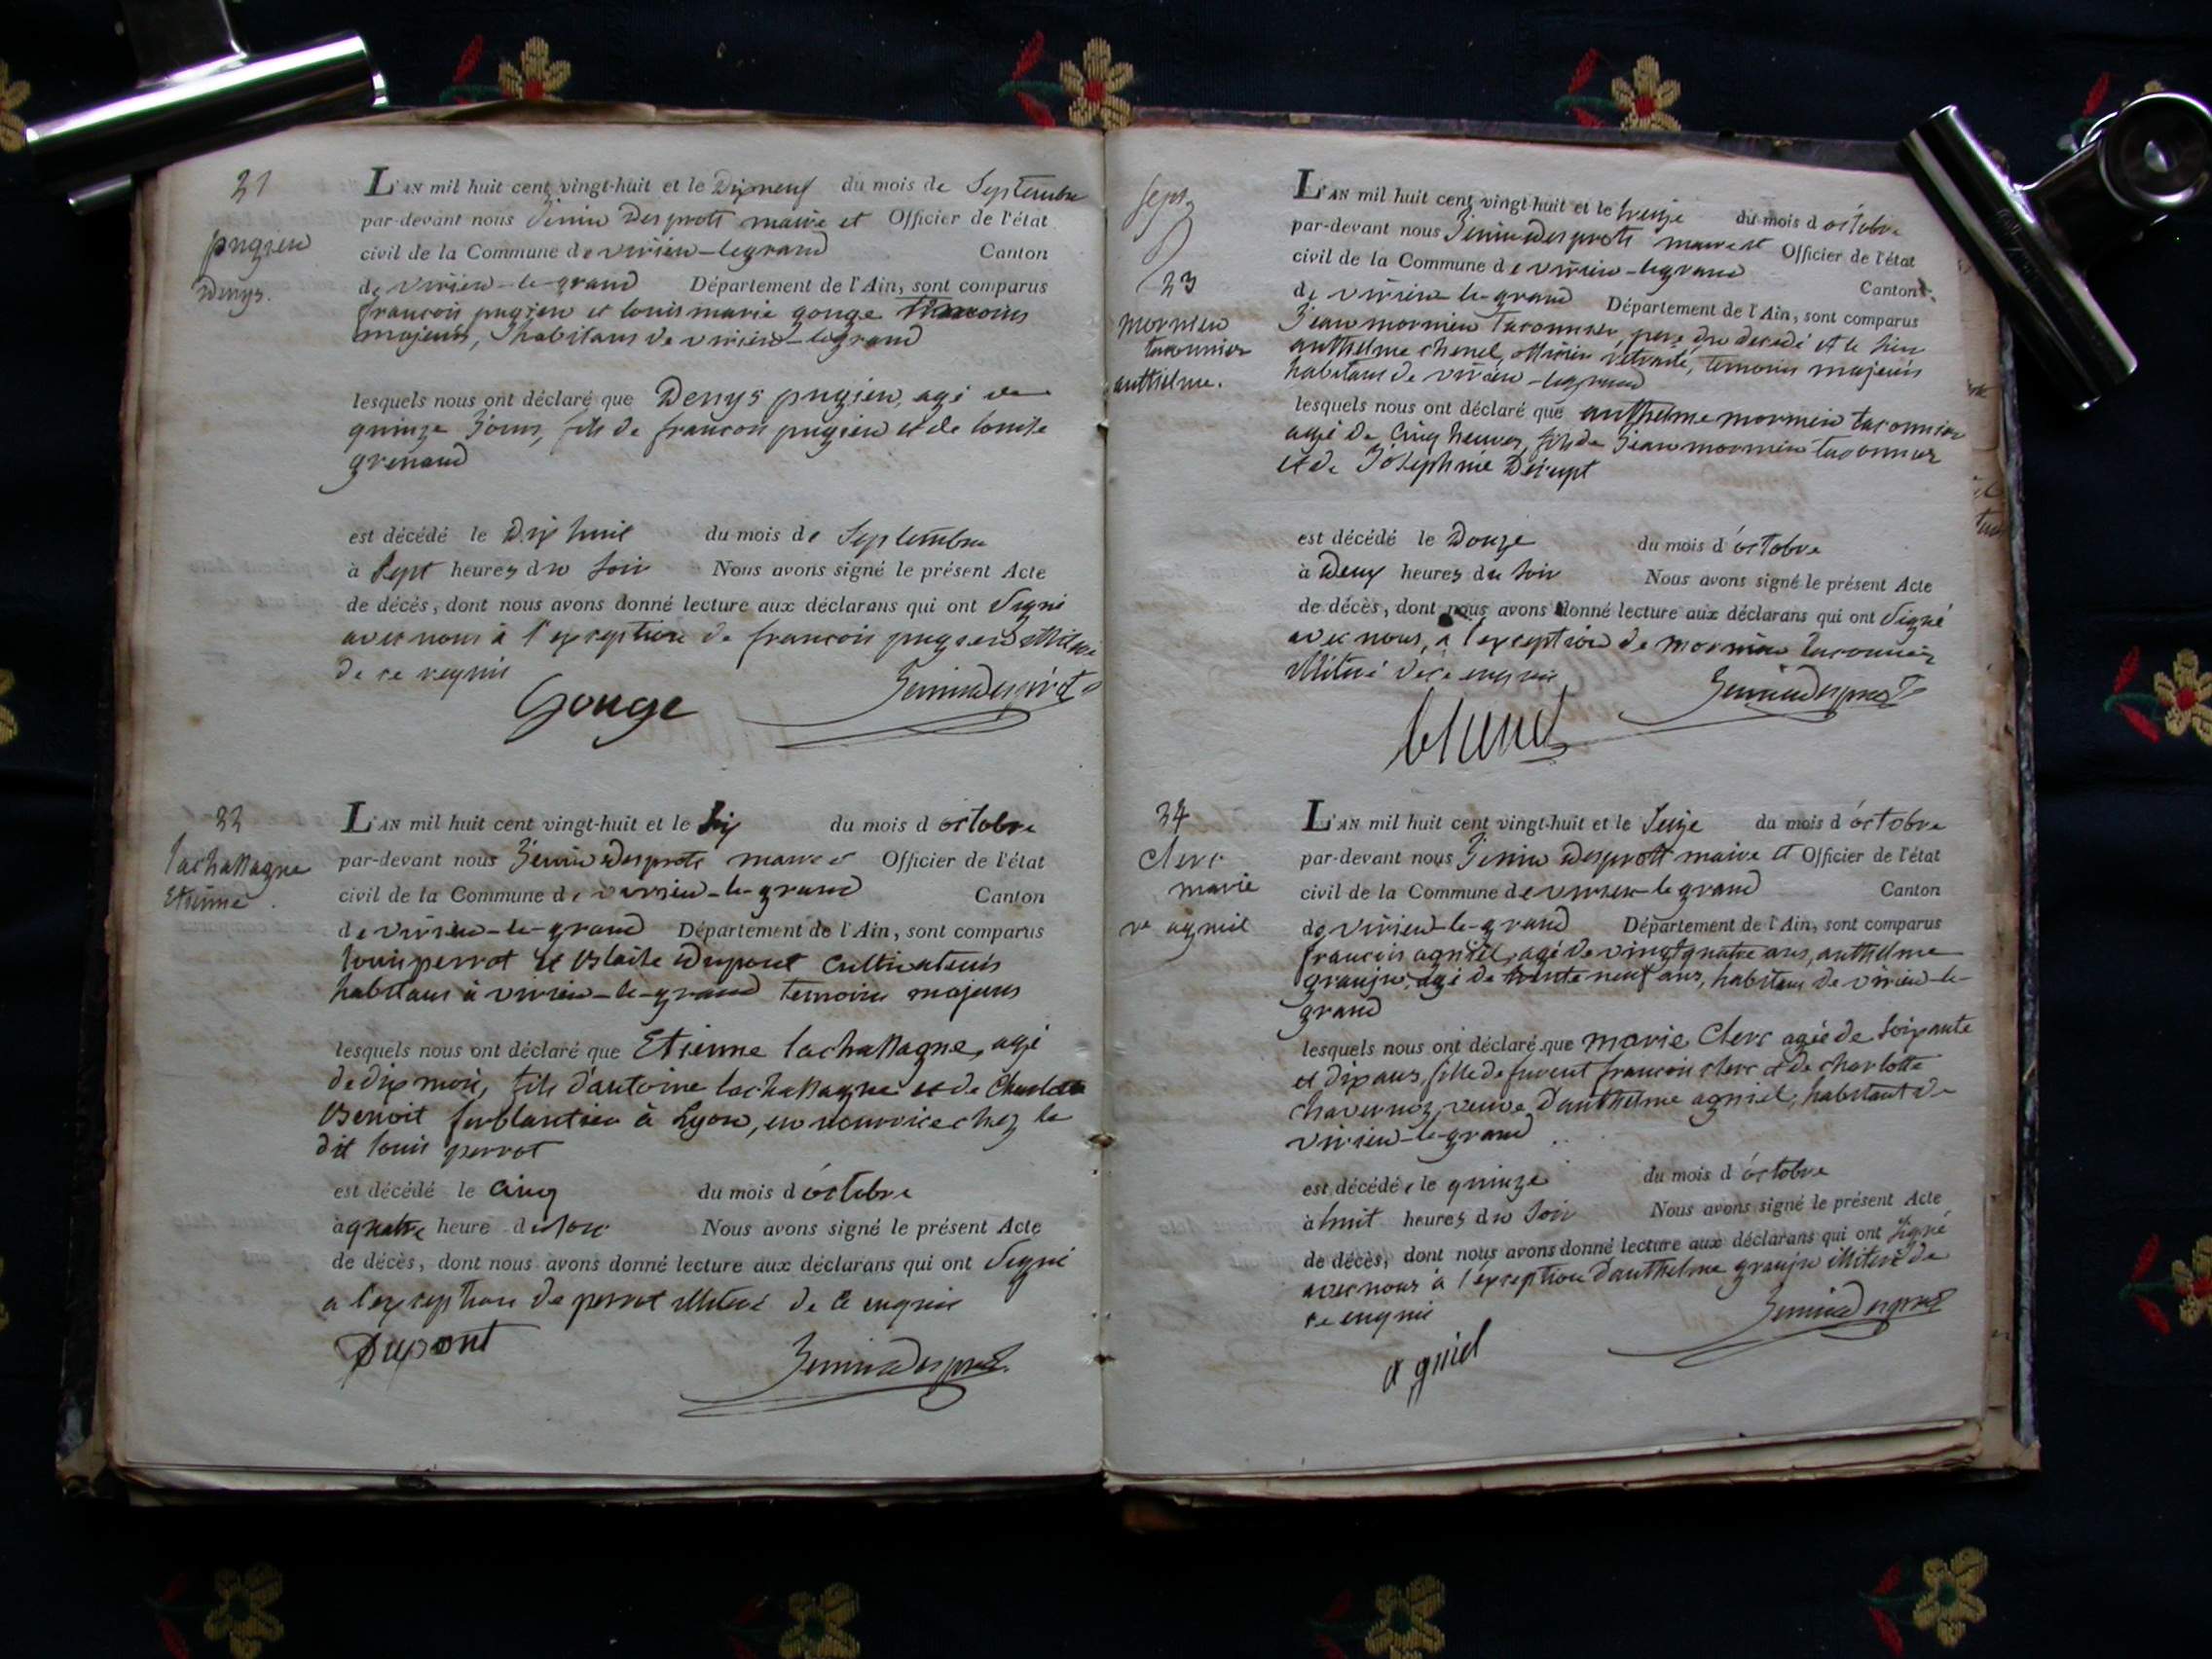 21
pugieu
Denys.
L'AN mil huit cent vingt-huit et le Dixneuf du mois de Septembre
par-devant nous Jenin Desprots maire et Officier de l'état
civil de la Commune de virieu-legrand Canton
de virieu-le-grand Département de l'Ain, sont comparus
francois pugieu et louis marie gouge temoins
majeurs, habitans de virieu-legrand
lesquels nous ont déclaré que Denys pugieu, agé de
quinze Jours, fils de francois pugieu et de louise
grenaud
est décédé le Dix huit du mois de Septembre
à Sept heures du Soir Nous avons signé le présent Acte
de décès, dont nous avons donné lecture aux déclarans qui ont Signé
avec nous à l'exception de francois pugieu
de ce requis
Gouge Jenin Desprots
22
lachassagne
Etienne.
L'AN mil huit cent vingt-huit et le Six du mois d octobre
par-devant nous Jenin Desprots maire et Officier de l'état
civil de la Commune de virieu-le-grand Canton
de virieu-le-grand Département de l'Ain, sont comparus
louis perrot et Dupont Cultivateurs
habitans à virieu-le-grand temoins majeurs
lesquels nous ont déclaré que Etienne lachassagne, agé
de dix mois, fils d'antoine lachassagne et de Charlotte
Benoit ferblantier à Lyon, en nourrice chez le
dit louis perrot
est décédé le Cinq du mois d octobre
à quatre heure du soir Nous avons signé le présent Acte
de décès, dont nous avons donné lecture aux déclarans qui ont Signé
a l'exception de perrot illiteré de ce enquis
Dupont Jenin Desprots
Sept
23
mornieu
taconnier
anthelme.
L'AN mil huit cent vingt-huit et le treize du mois d octobre
par-devant nous Jenin Desprots maire et Officier de l'état
civil de la Commune de virieu-legrand Canton
de virieu-le-grand Département de l'Ain, sont comparus
Jean mornieu taconnier, pere du decedé et le Sieur
anthelme chenel, officier retraité, temoins majeurs
habitans de virieu-legrand
lesquels nous ont déclaré que anthelme mornieu taconnier
agé de Cinq heures, fils de Jean mornieu taconnier
et de Joséphine
est décédé le Douze du mois d octobre
à Deux heures du Soir Nous avons signé le présent Acte
de décès, dont nous avons donné lecture aux déclarans qui ont Signé
avec nous, a l'exception de mornieu taconnier
illiteré de ce enquis
Jenin Desprots
24
Clerc
marie
ve agniel
L'AN mil huit cent vingt-huit et le Seize du mois d octobre
par-devant nous Jenin Desprots maire et Officier de l'état
civil de la Commune de virieu-le-grand Canton
de virieu-le-grand Département de l'Ain, sont comparus
francois agniel, agé de vingt quatre ans, anthelme
granju, agé de trente neuf ans, habitans de virieu-le-
grand
lesquels nous ont déclaré que marie Clerc agée de Soixante
et dix ans, fille de furent francois clerc et de charlotte
chavernoz, veuve d'anthelme agniel, habitant de
virieu-le-grand
est décédé, le quinze du mois d octobre
à huit heures du Soir Nous avons signé le présent Acte
de décès, dont nous avons donné lecture aux déclarans qui ont signé
avec nous à l'exception d'anthelme granju illiteré de
ce enquis
agniel Jenin Desprots